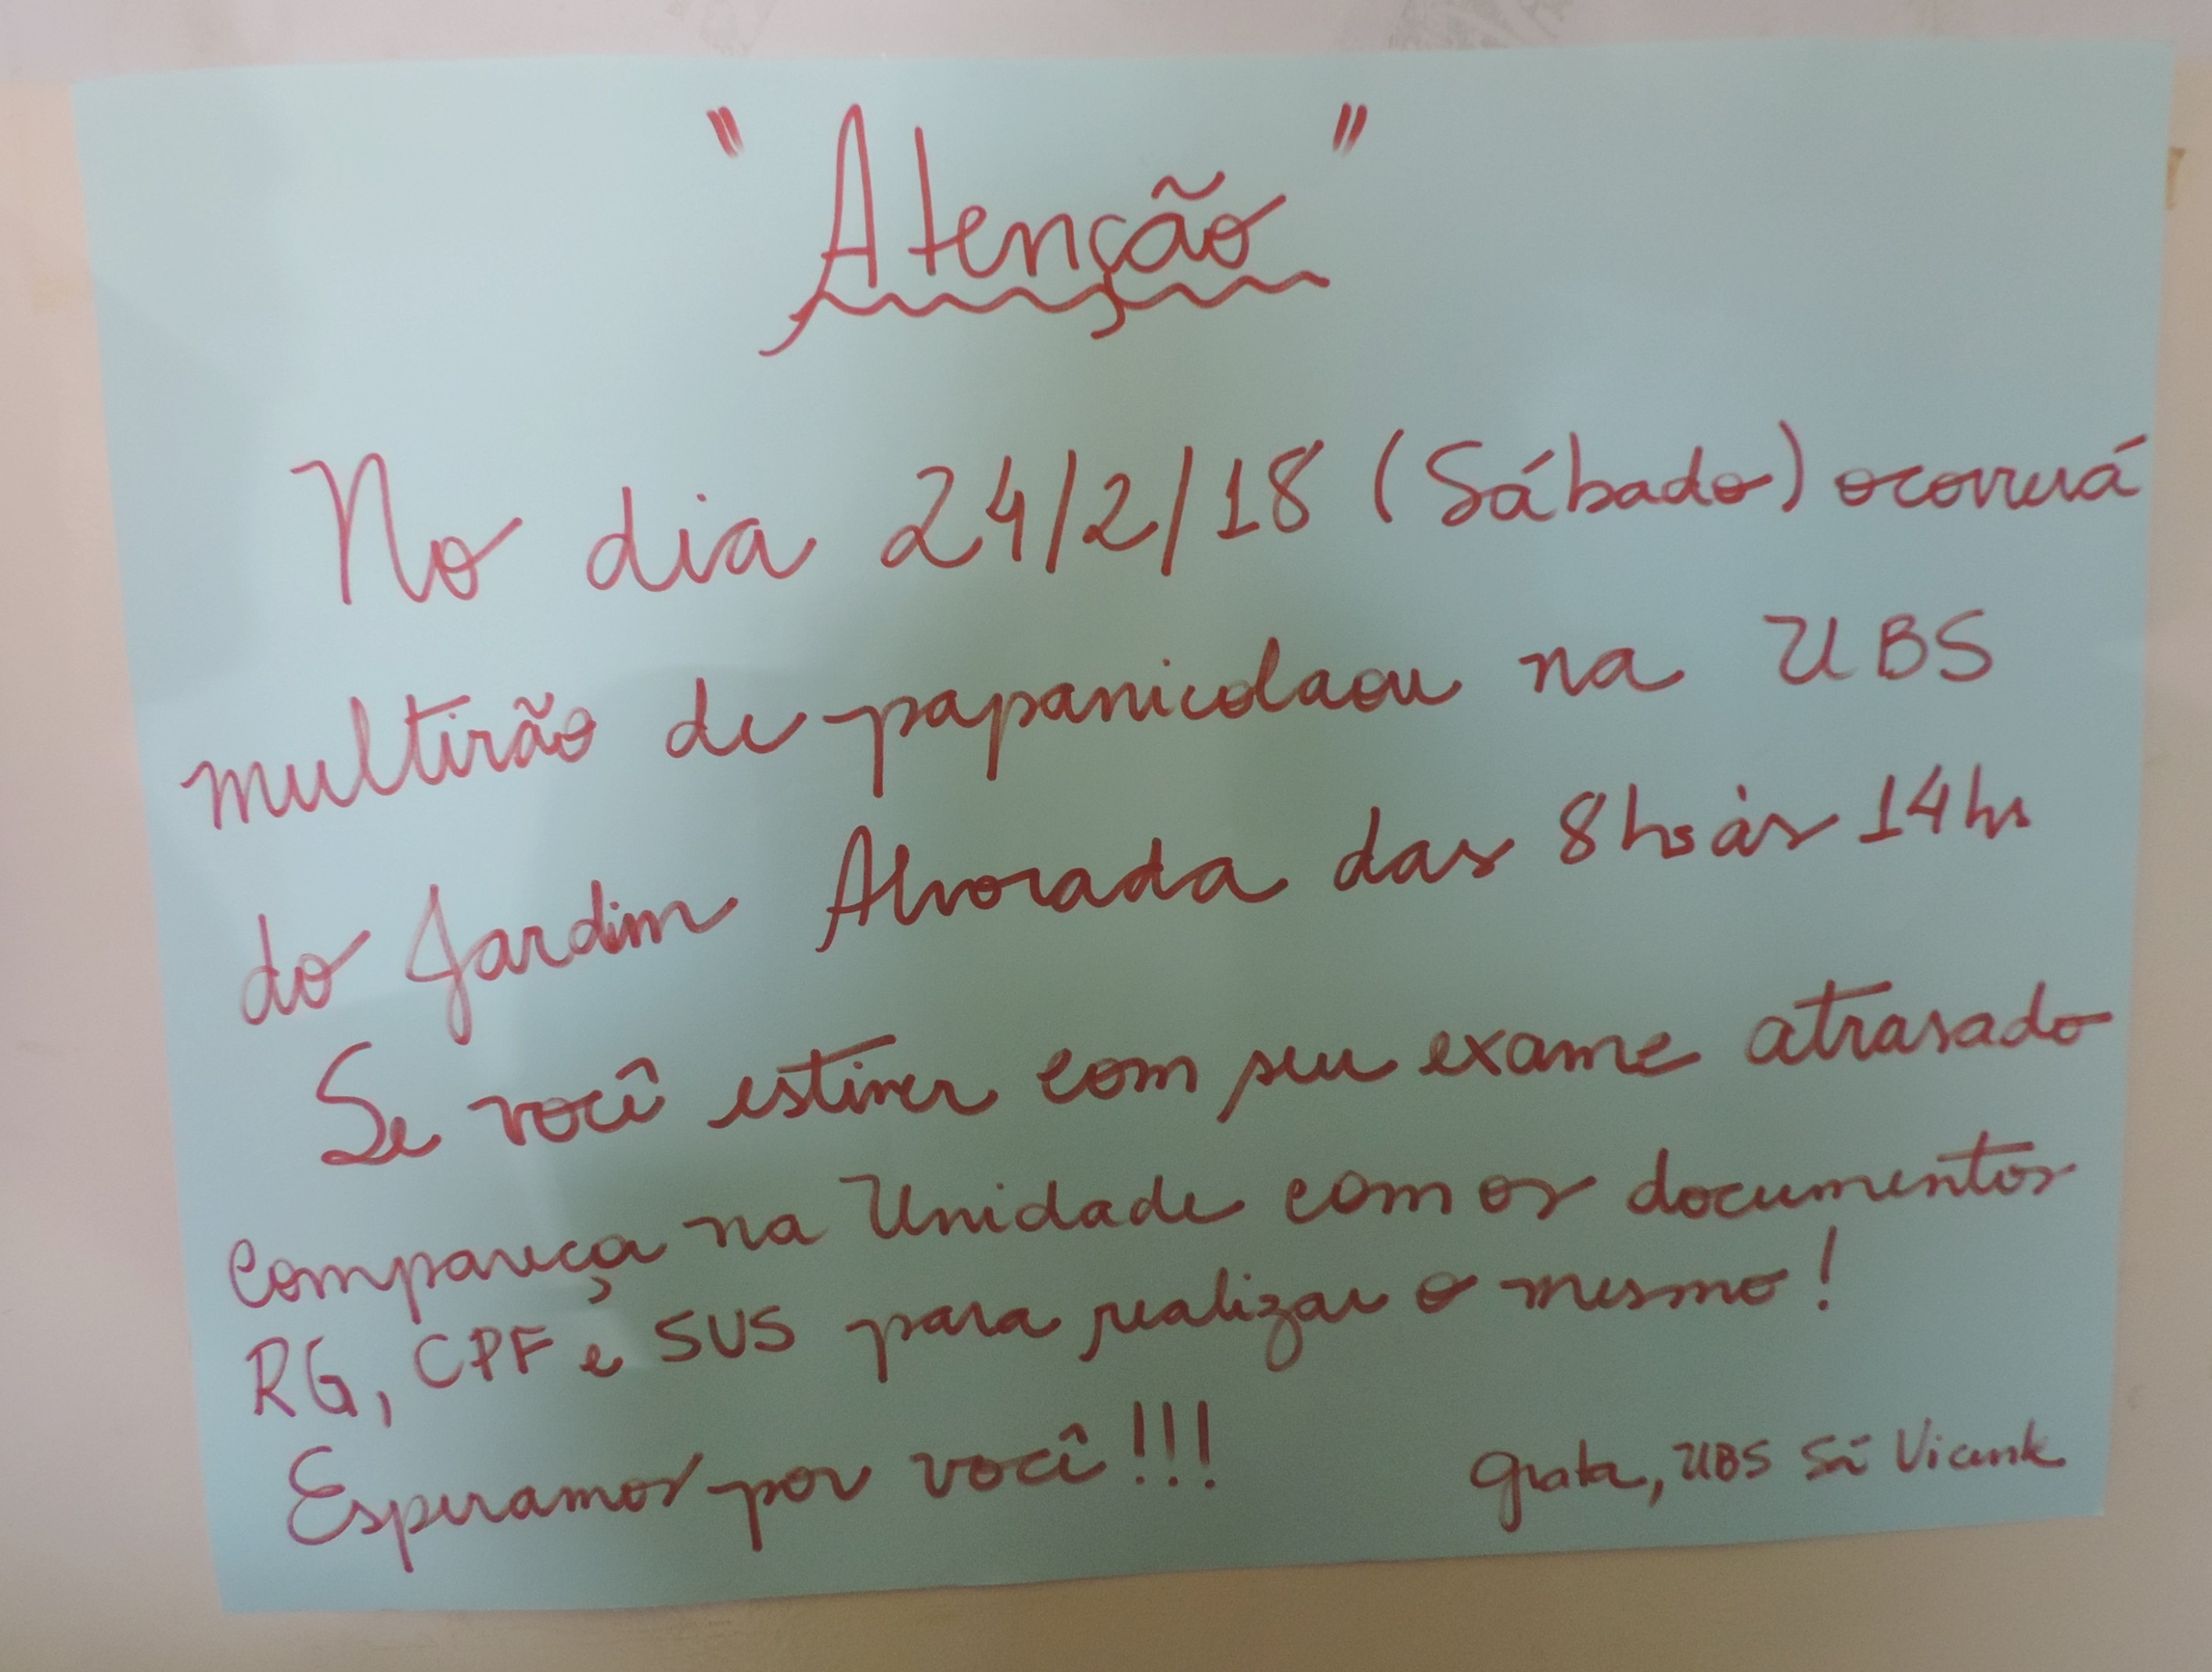 "Atenção"
No dia 24/2/18 (Sábado) ocorrerá
multirão de papanicolaou na UBS
do Jardim Alvorada das 8hs às 14hs
Se você estiver com seu exame atrasado
compareça na Unidade com os documentos
RG, CPF e SUS para realizar o mesmo!
Esperamos por você!!!
Grata, UBS Sã Vicente